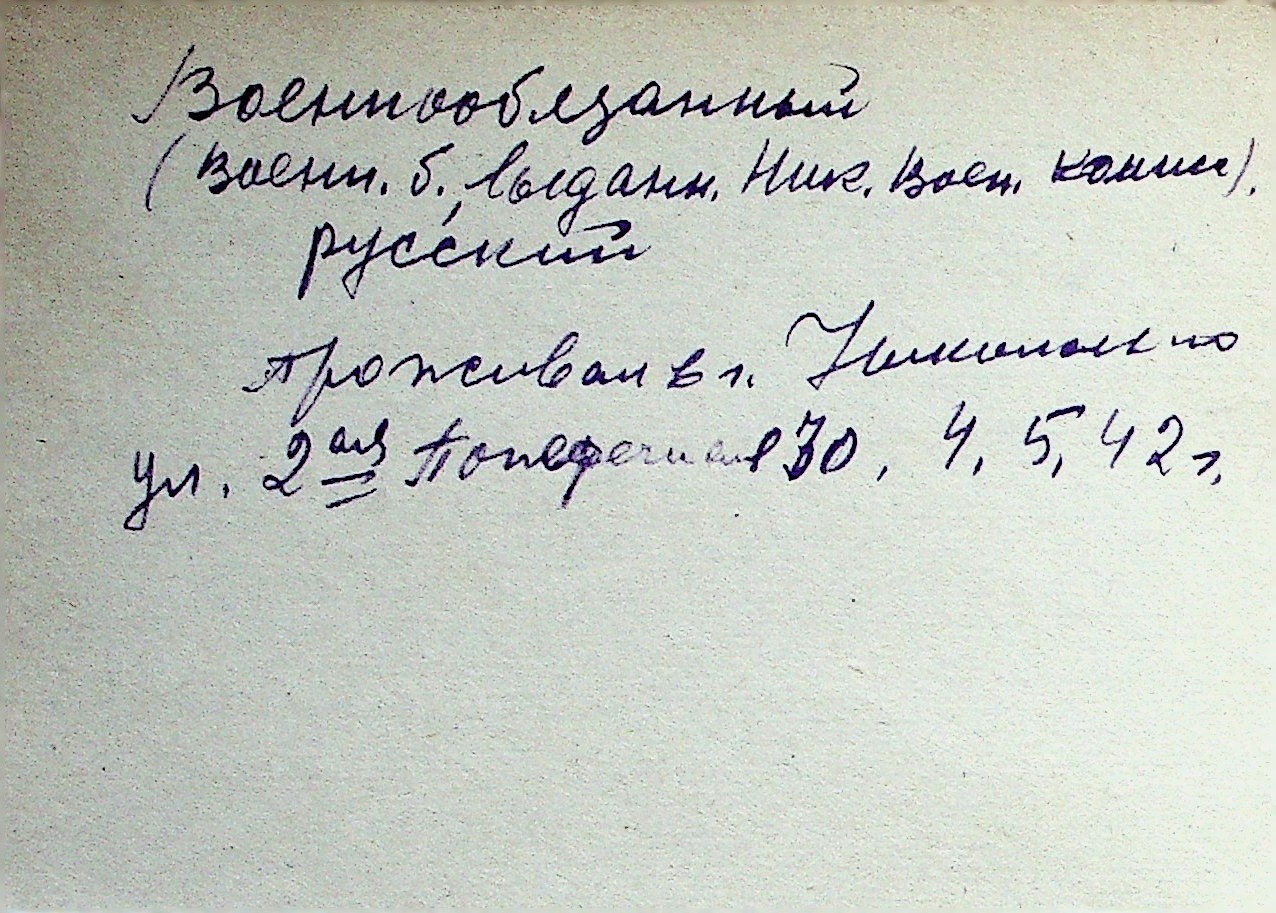 Военнообязанный
(Военн. б., выданн. Ник. Воен. комис).
русский
Проживал в г. Никополь по
ул. 2ая Поперечная 30, 4, 5, 42 г.